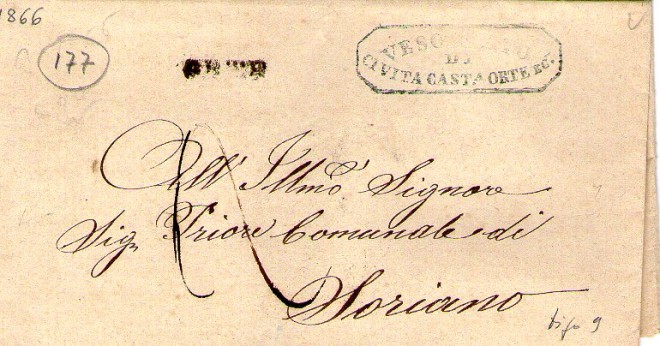 1866
177
VESCOVATO
DI
CIVITA CASTA ORTE EC.
All' Illmo Signore
Sig. Priore Comunale di
Soriano
tipo 9